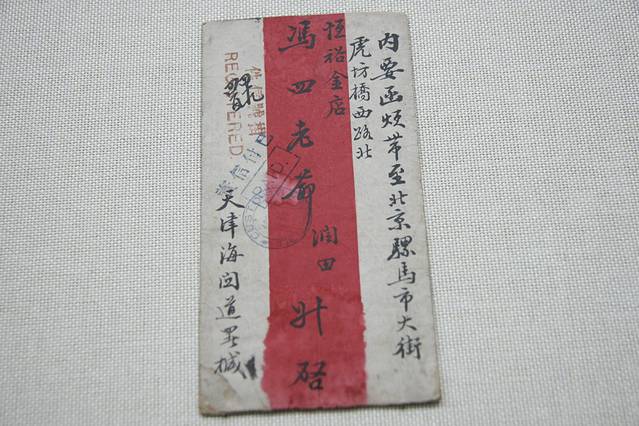 内要函烦带至北京骡馬市大街
虎坊橋西路北
恒裕金店
馮四老爺 潤田 升啓
天津海関道署椷
REGISTERED